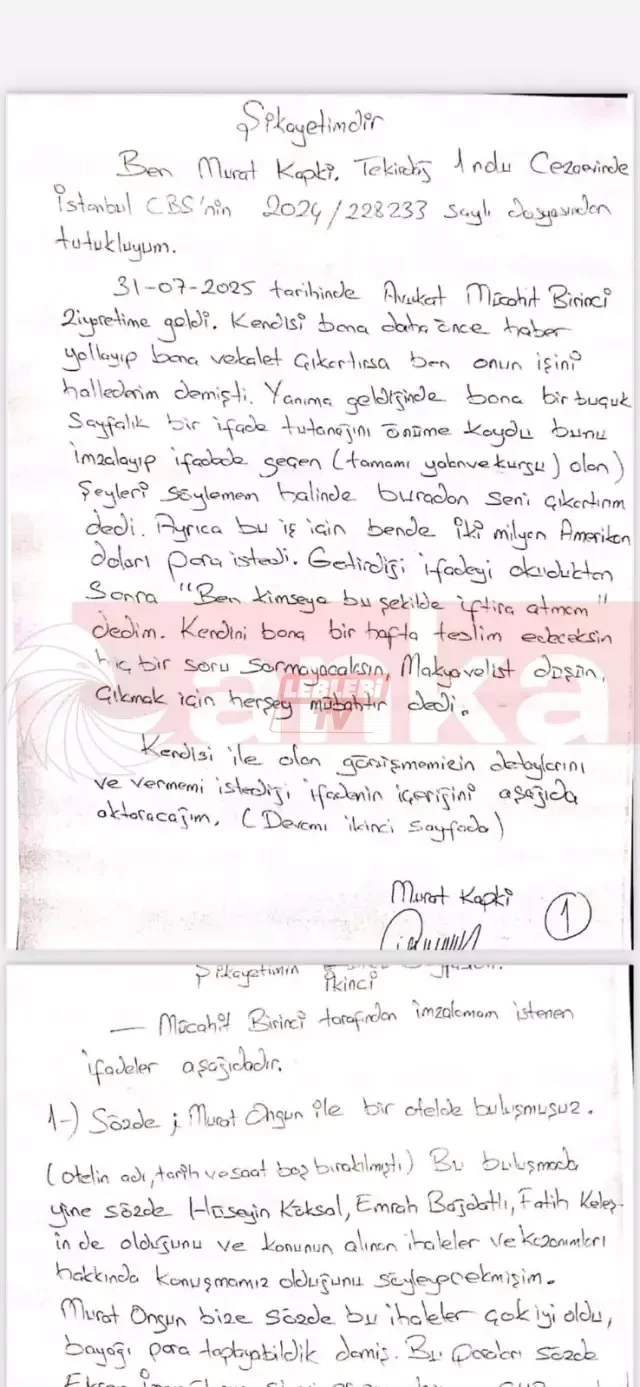 Şikayetimdir
Ben Murat Kapki. Tekirdağ 1 nolu Cezaevinde
İstanbul CBS'nin 2024/228233 sayılı dosyasından
tutukluyum.
31-07-2025 tarihinde Avukat Mücahit Birinci
Ziyaretime geldi. Kendisi bana daha önce haber
yollayıp bana vekalet çıkartırsa ben onun işini
hallederim demişti. Yanıma geldiğinde bana bir buçuk
Sayfalık bir ifade tutanağını önüme koydu bunu
imzalayıp ifadede geçen (tamamı yalan ve kurgu) olan)
Şeyleri söylemem halinde buradan seni çıkartırım
dedi. Ayrıca bu iş için bende iki milyon Amerikan
doları para istedi. Getirdiği ifadeyi okuduktan
Sonra "Ben kimseye bu şekilde iftira atmam"
dedim. Kendini bana bir hafta teslim edeceksin
hiç bir soru sormayacaksın, Makyavelist düşün,
Çıkmak için herşey mübahtır dedi.
anka
LEBLEBİ
TV
Kendisi ile olan görüşmemizin detaylarını
ve vermemi istediği ifadenin içeriğini aşağıda
aktaracağım. (Devamı ikinci sayfada)
Murat Kapki
1
Şikayetimin İkinci
— Mücahit Birinci tarafından imzalamam istenen
ifadeler aşağıdadır.
1-) Sözde ; Murat Ongun ile bir otelde buluşmuşuz.
(otelin adı, tarih ve saat boş bırakılmıştı) Bu buluşmada
yine sözde Hüseyin Köksal, Emrah Bağdatlı, Fatih Keleş-
in de olduğunu ve konunun alınan ihaleler ve kazanımları
hakkında konuşmamız olduğunu söyleyecekmişim.
Murat Ongun bize sözde bu ihaleler çok iyi oldu,
bayağı para toplayabildik demiş. Bu paraları sözde